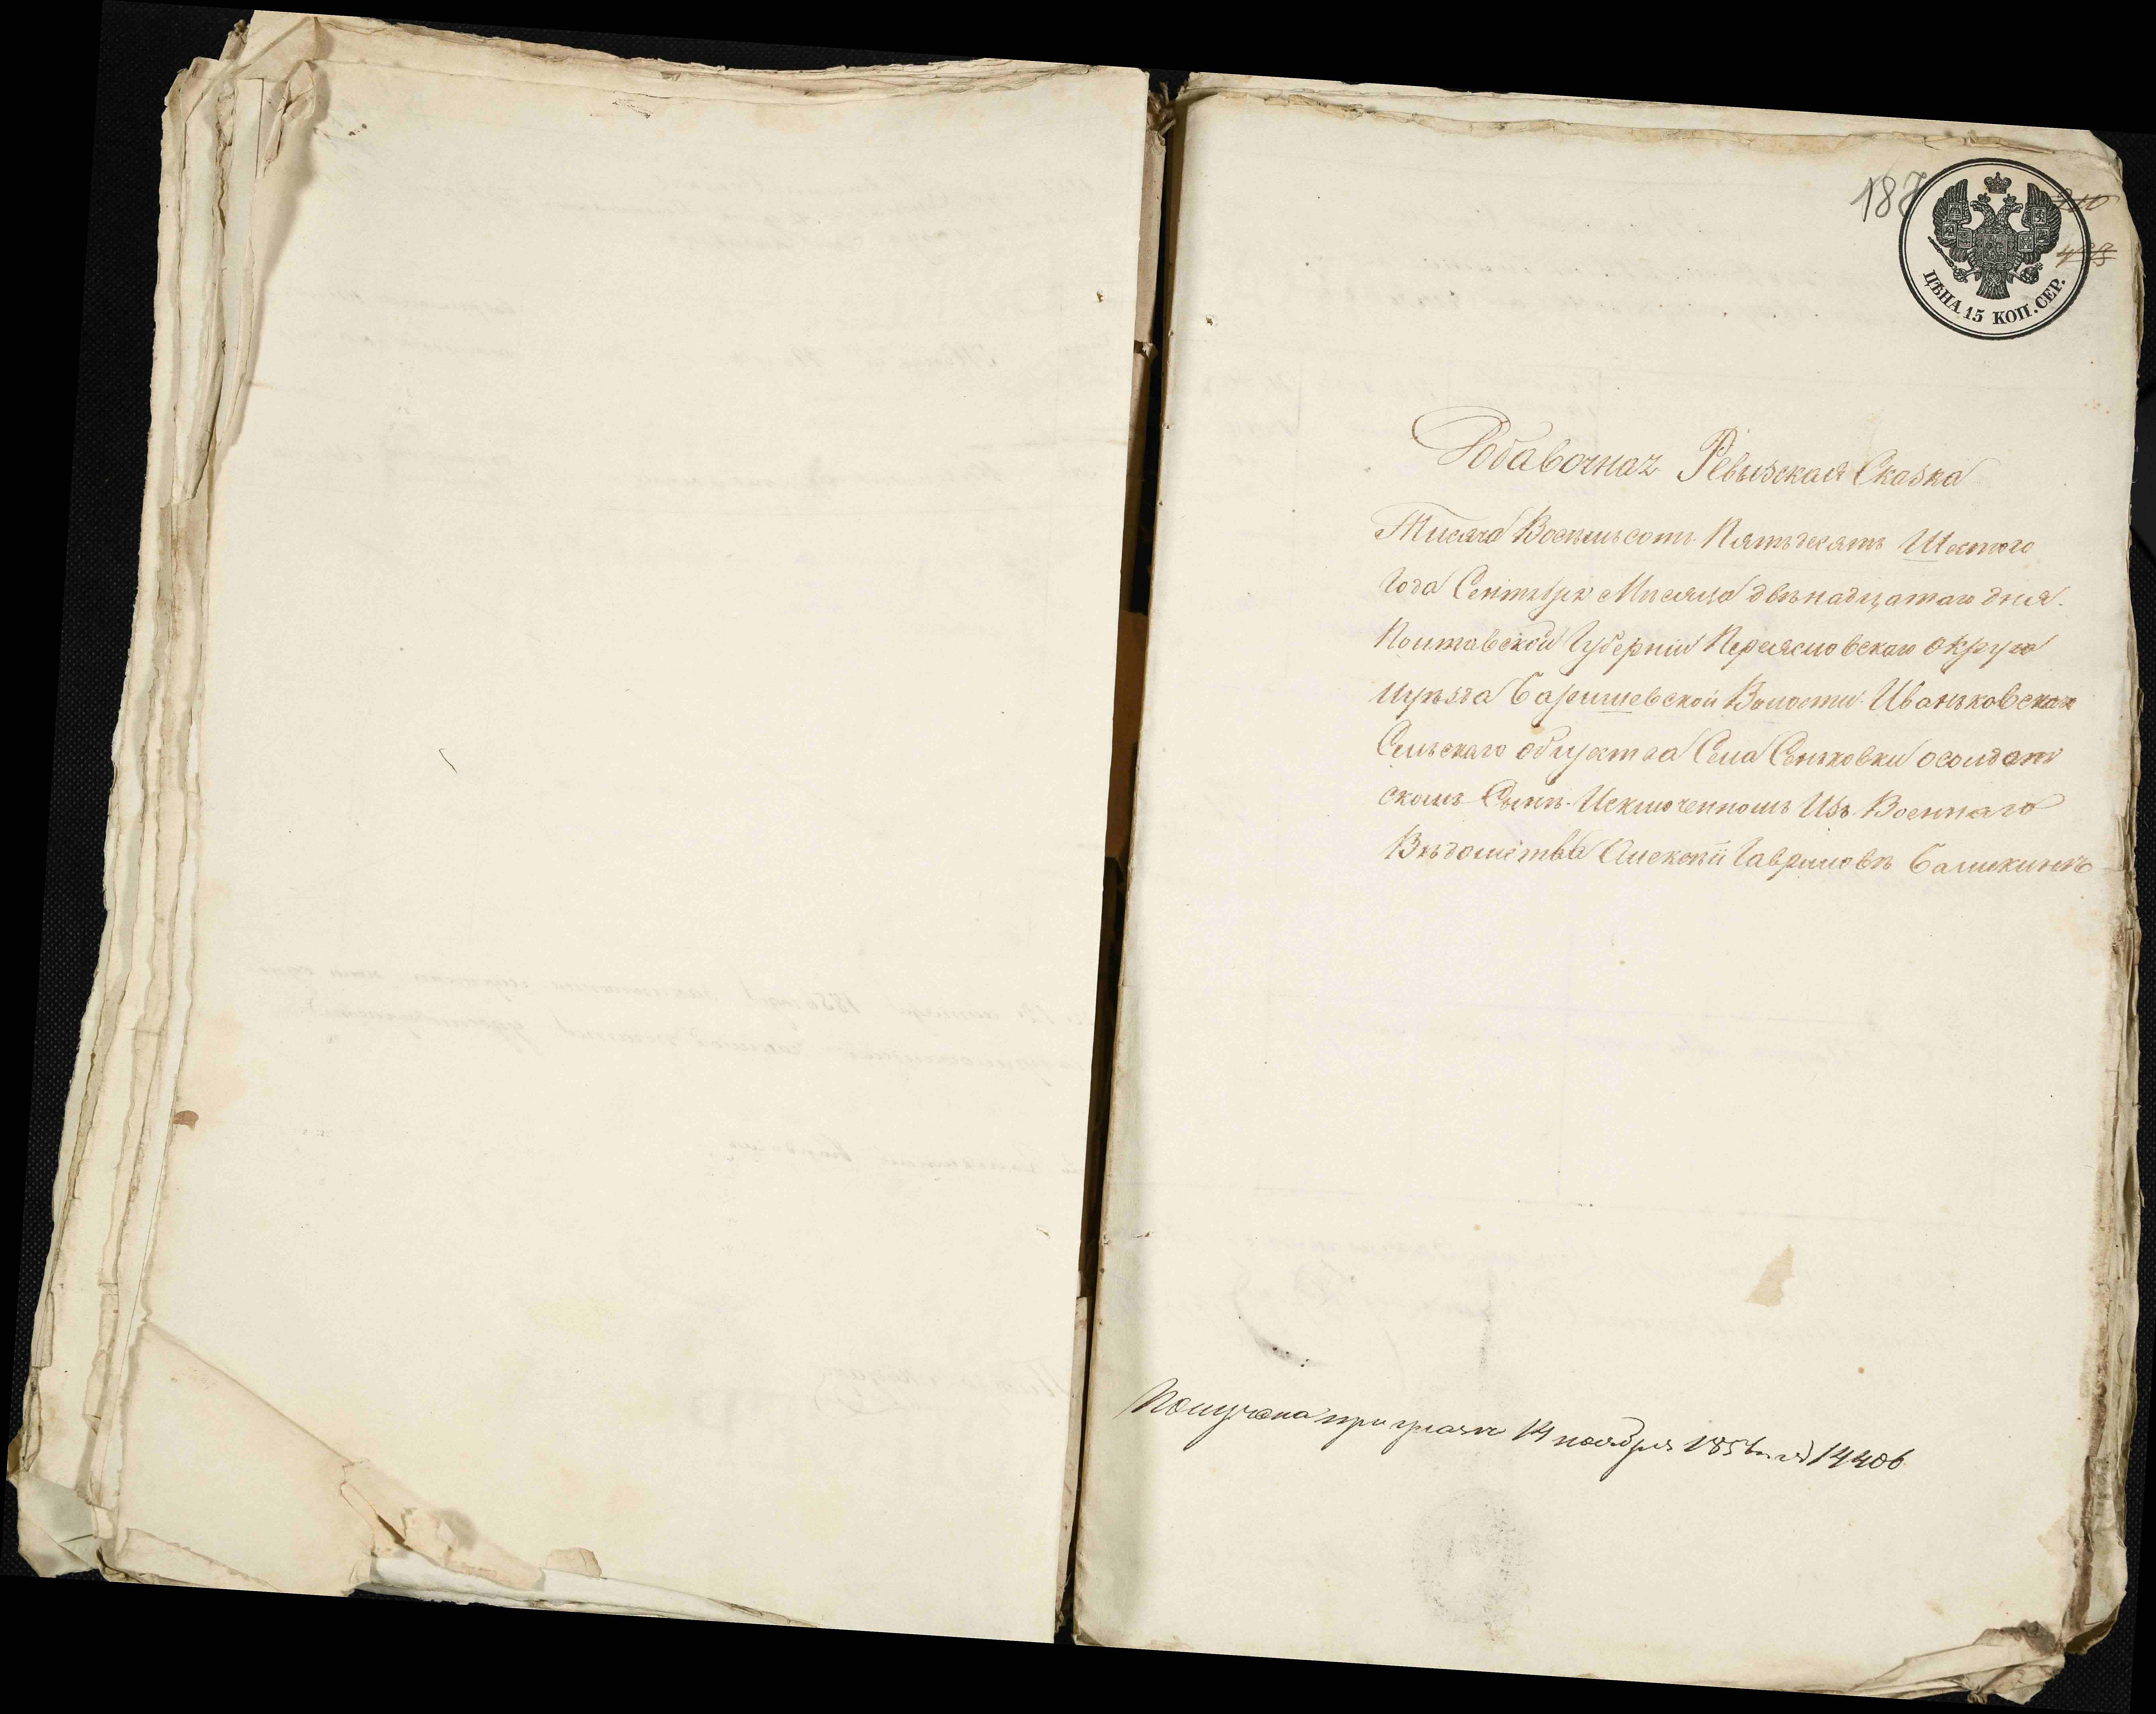 187
210
ЦѢНА 15 КОП. СЕР.
Добавочная Ревизская Сказка
Тисяча Восъмьсотъ Пятьдесятъ Шестого
Года Сентября Мѣсяца двѣнадцатаго дня.
Полтавской Губерніи Переясловскаго Округа
Иуѣзда Баришевской Волости Иваньковскаго
Сельскаго общества Села Сеньковки осолдат
скомъ Сынѣ Исключенномъ Изъ Военнаго
Вѣдомства Алексѣй Гавриловѣ Балшкинѣ
Получена при указѣ 14 ноября 1856 14406